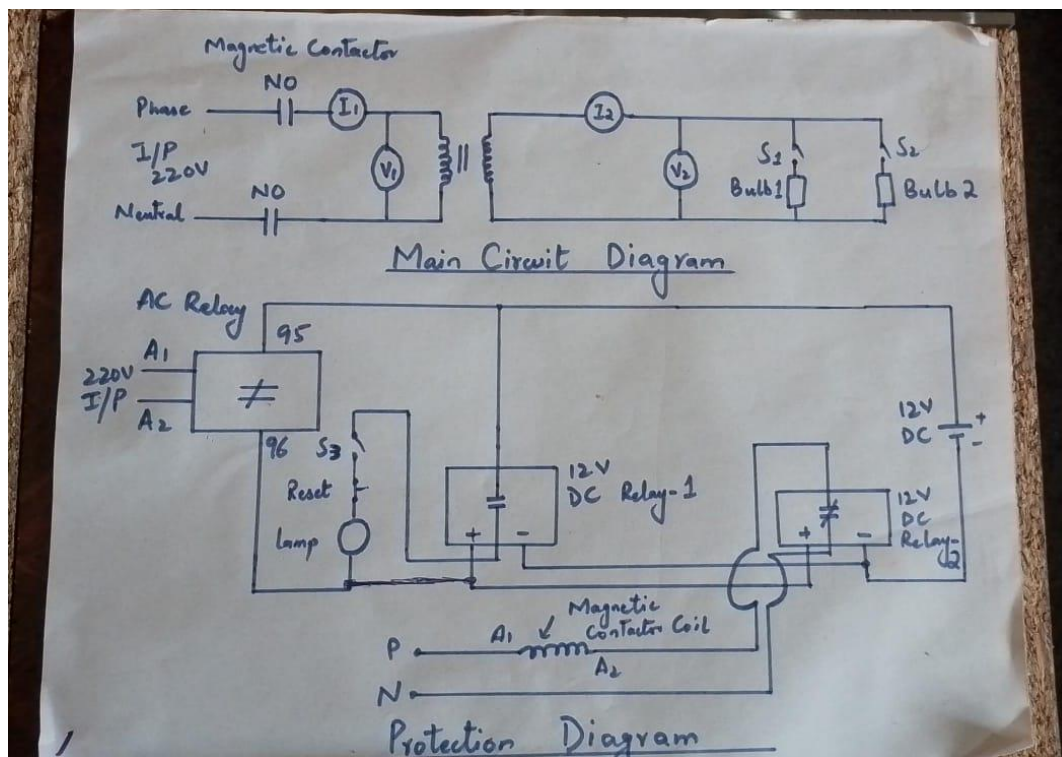 Magnetic Contactor
NO
Phase
I1
I2
I/P
220V
V1
V2
S1
S2
Bulb1
Bulb2
NO
Neutral
Main Circuit Diagram
AC Relay
95
A1
220V
I/P
A2
96
S3
Reset
Lamp
12V
DC Relay-1
+
-
12V
DC
+
-
12V
DC
Relay-
2
+
-
Magnetic
Contactor Coil
A1
P
A2
N
Protection Diagram